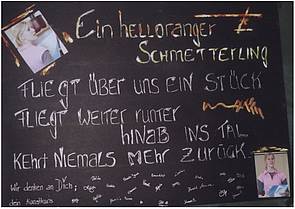 Ein helloranger
Schmetterling
fliegt über uns ein Stück
fliegt weiter runter
hinab ins Tal
kehrt niemals mehr zurück
Wir denken an Dich,
dein Kunstkurs